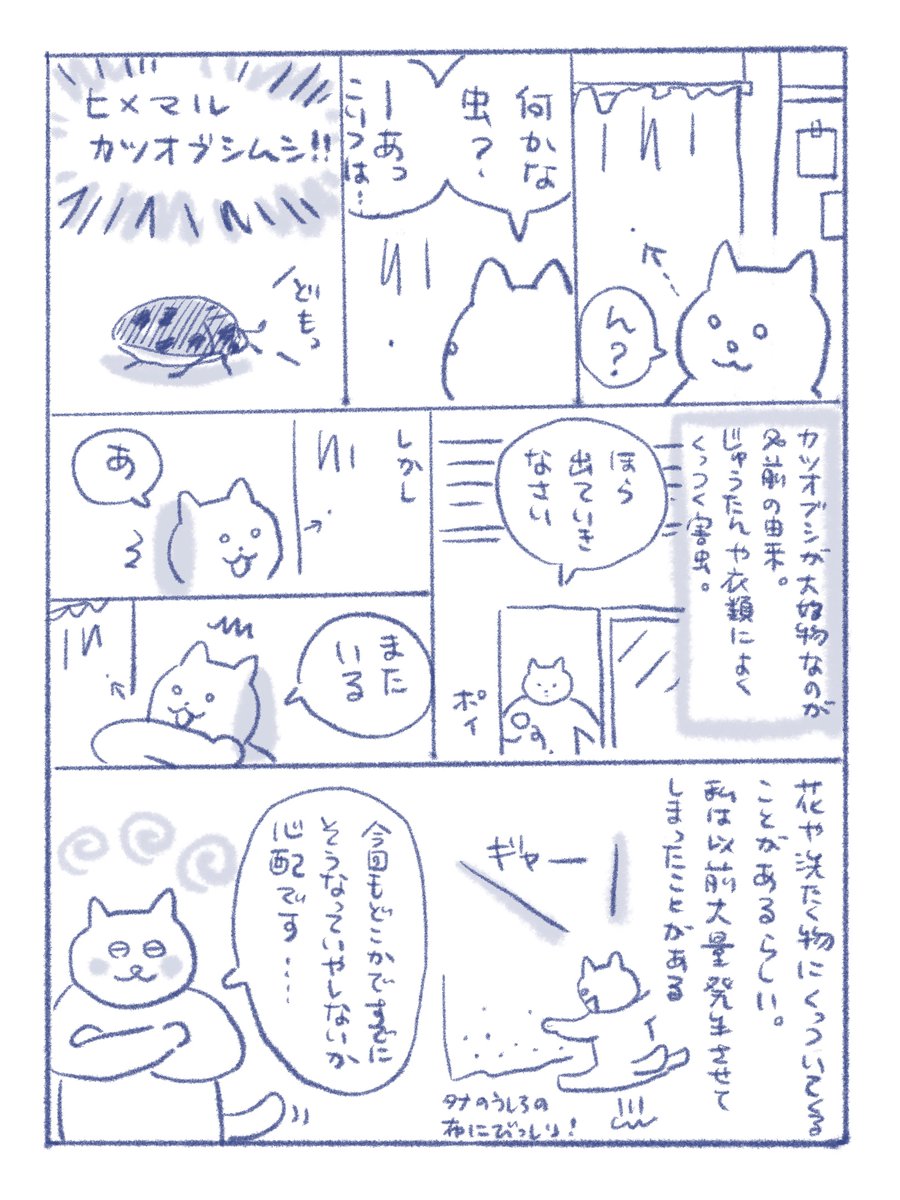 ん?
何かな
虫?
ーあっ
こいつは…
ヒメマル
カツオブシムシ!!
どもっ
カツオブシが大好物なのが
名前の由来。
じゅうたんや衣類によく
くっつく害虫。
ほら
出ていき
なさい
ポイ
しかし
あ
また
いる
花や洗たく物にくっついてくる
ことがあるらしい。
私は以前大量発生させて
しまったことがある
ギャー
タナのうしろの
布にびっしり!
今回もどこかですでに
そうなっていやしないか
心配です……